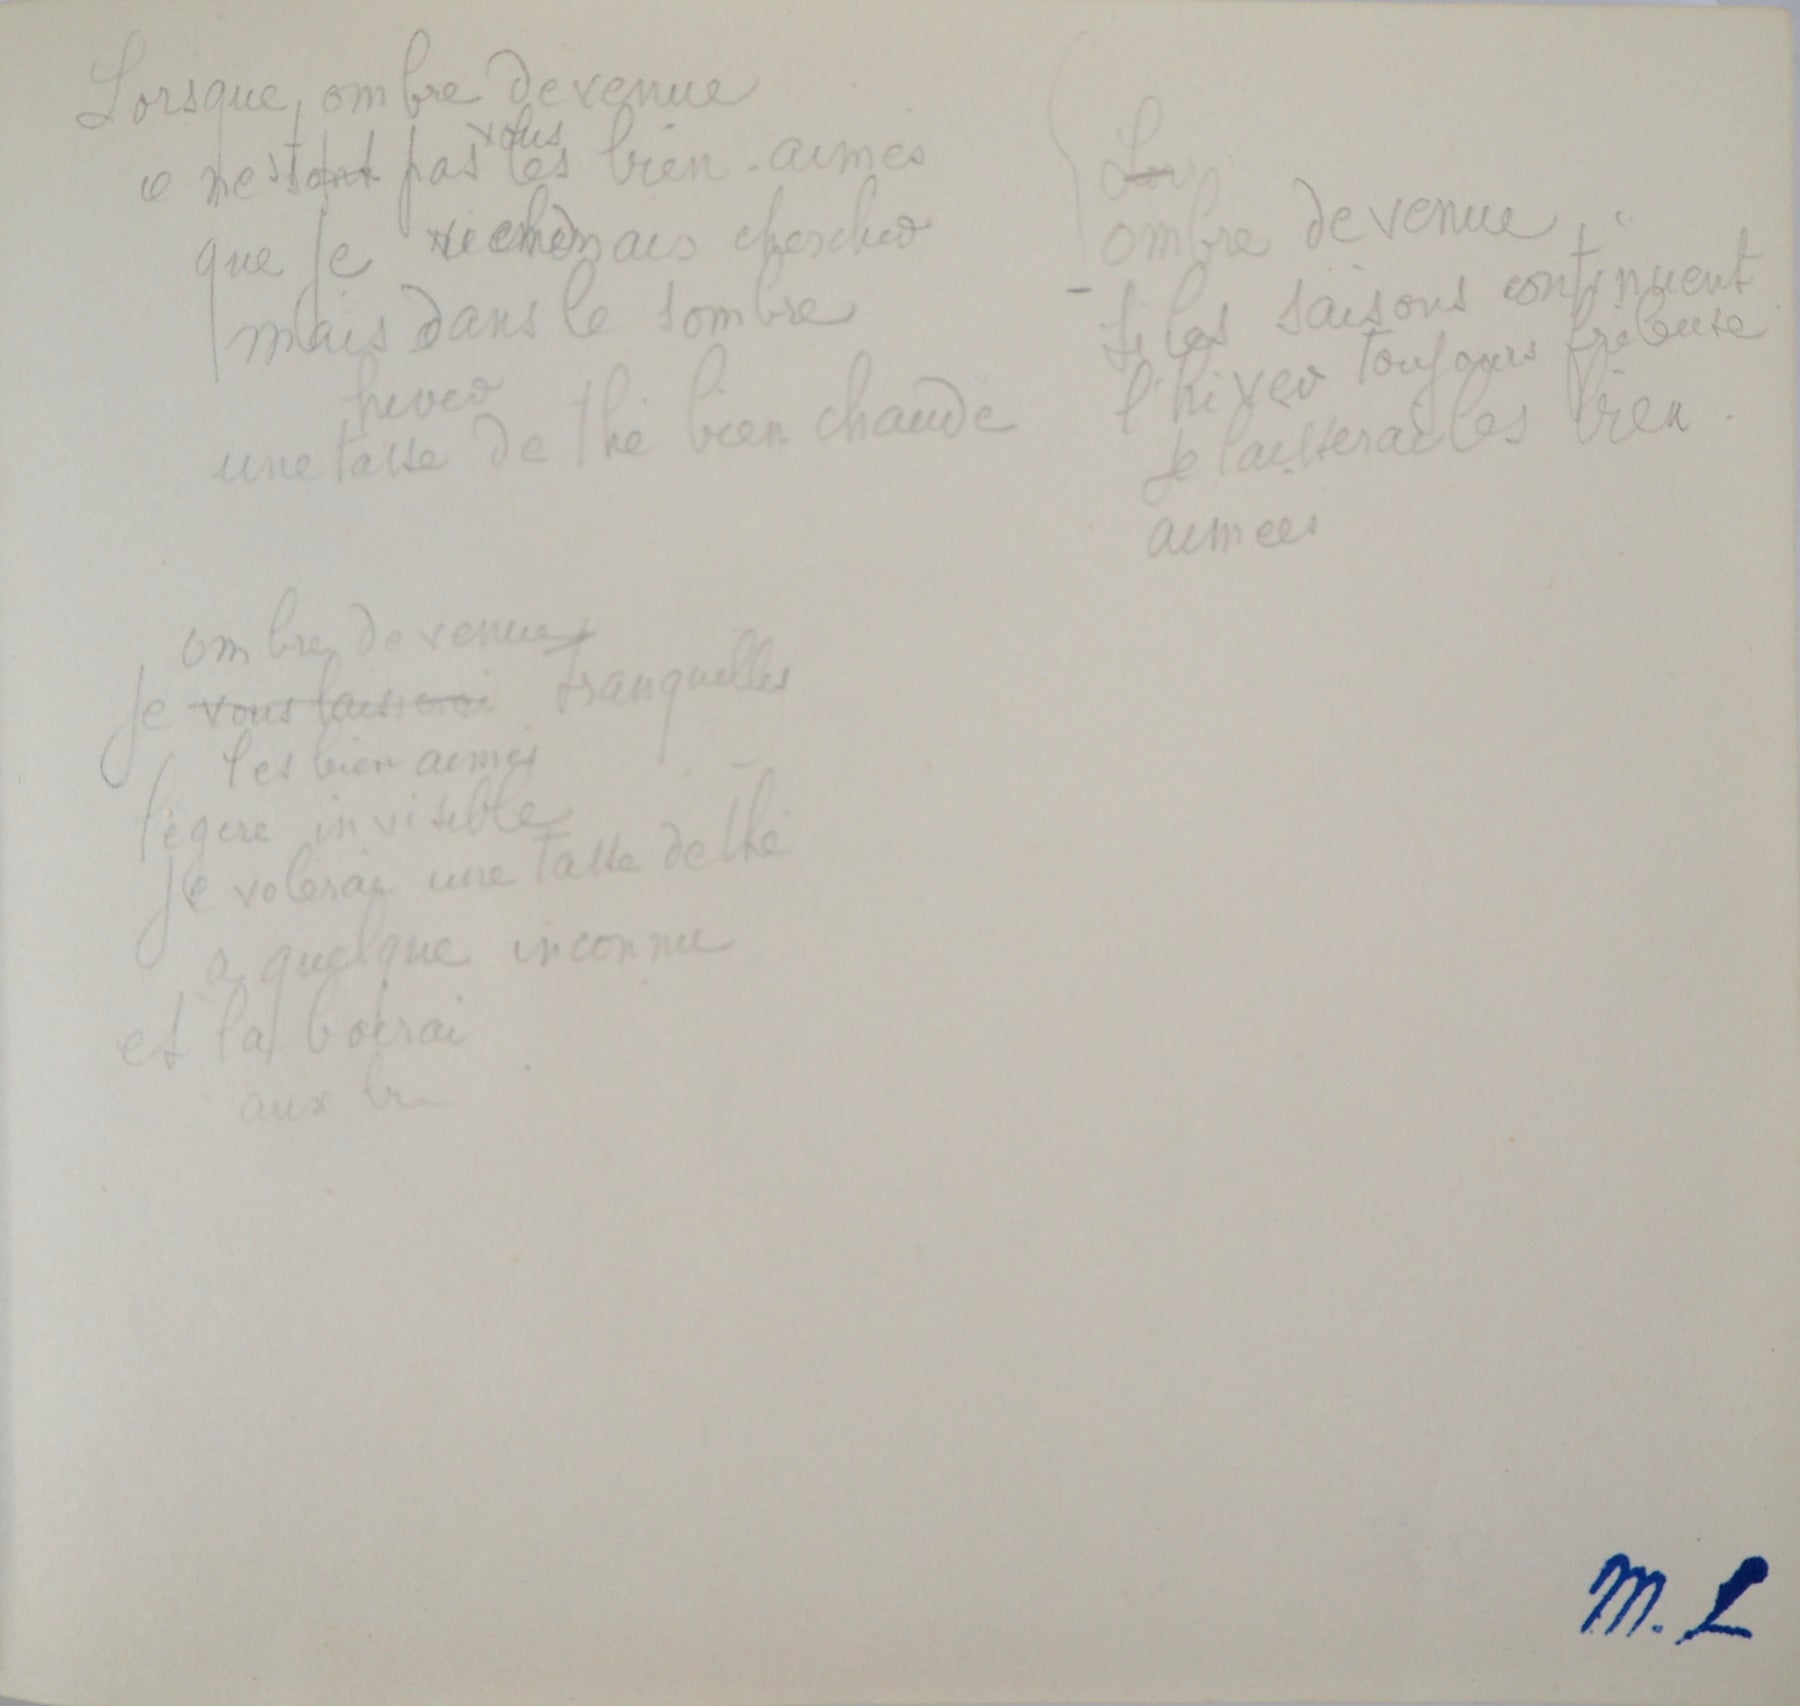 Lorsque, ombre devenue
ce n'est pas vous les bien-aimés
que je viendrais chercher
mais dans le sombre
hiver
une tasse de thé bien chaude
ombre devenue
je vous laisserai tranquilles
les bien aimés
légère invisible
je volerai une tasse de thé
a quelque inconnu
et la boirai
aux
ombre devenue,
- si les saisons continuent
l'hiver toujours frileuse
je laisserai les bien
aimées
M. L